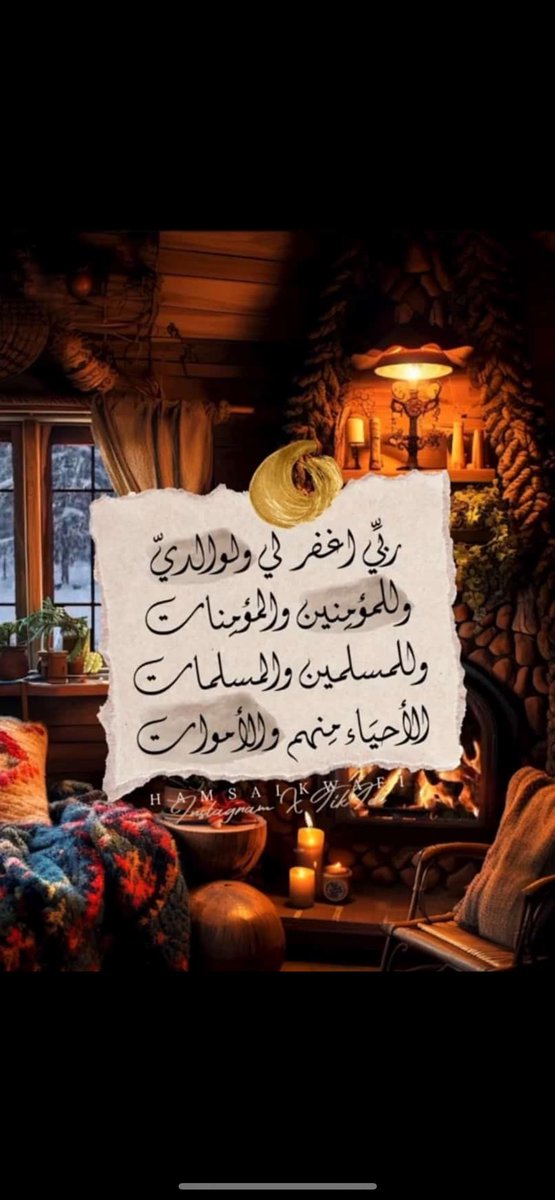 ربِّي اغفر لي ولوالديّ
وللمؤمِنين والمؤمِنات
وللمسلمين والمسلمات
الأحيَاء مِنهم والأموات
HAMSALKWAFI
Instagram X TikTok